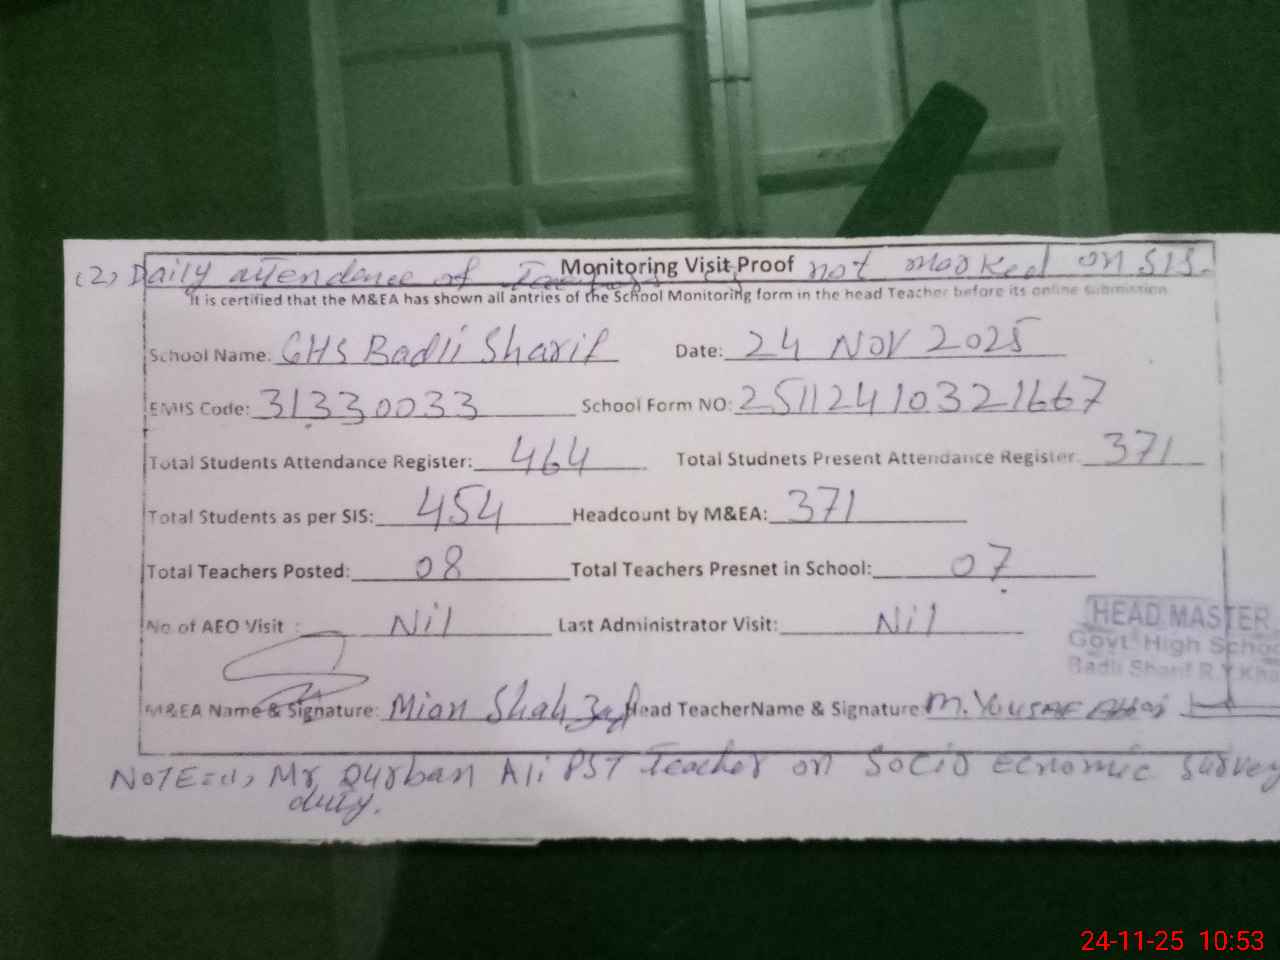 Monitoring Visit Proof
(2) Daily attendance of not marked on SIS.
It is certified that the M&EA has shown all antries of the School Monitoring form in the head Teacher before its online submission
School Name: GHS Badli Sharif Date: 24 NOV 2025
EMIS Code: 31330033 School Form NO: 25112410321667
Total Students Attendance Register: 464 Total Studnets Present Attendance Register: 371
Total Students as per SIS: 454 Headcount by M&EA: 371
Total Teachers Posted: 08 Total Teachers Presnet in School: 07
No of AEO Visit : Nil Last Administrator Visit: Nil
HEAD MASTER
Govt. High School
Badli Sharif R.Y.Kha
M&EA Name & Signature: Mian Shahzad Head TeacherName & Signature M. Yousaf
NOTE=(1) Mr Qurban Ali PST Teacher on Socio Ecnomic Survey
duty.
24-11-25 10:53